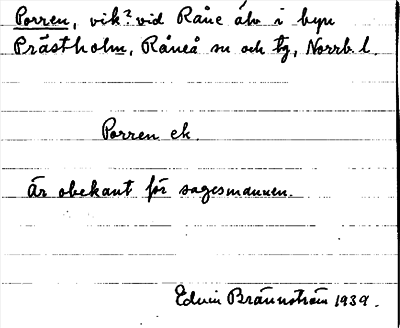 Porren, vik? vid Råne älv i byn
Prästholm, Råneå sn och tg, Norrb. l.
Porren ek.
Är obekant för sagesmannen.
Edvin Brännström 1939.